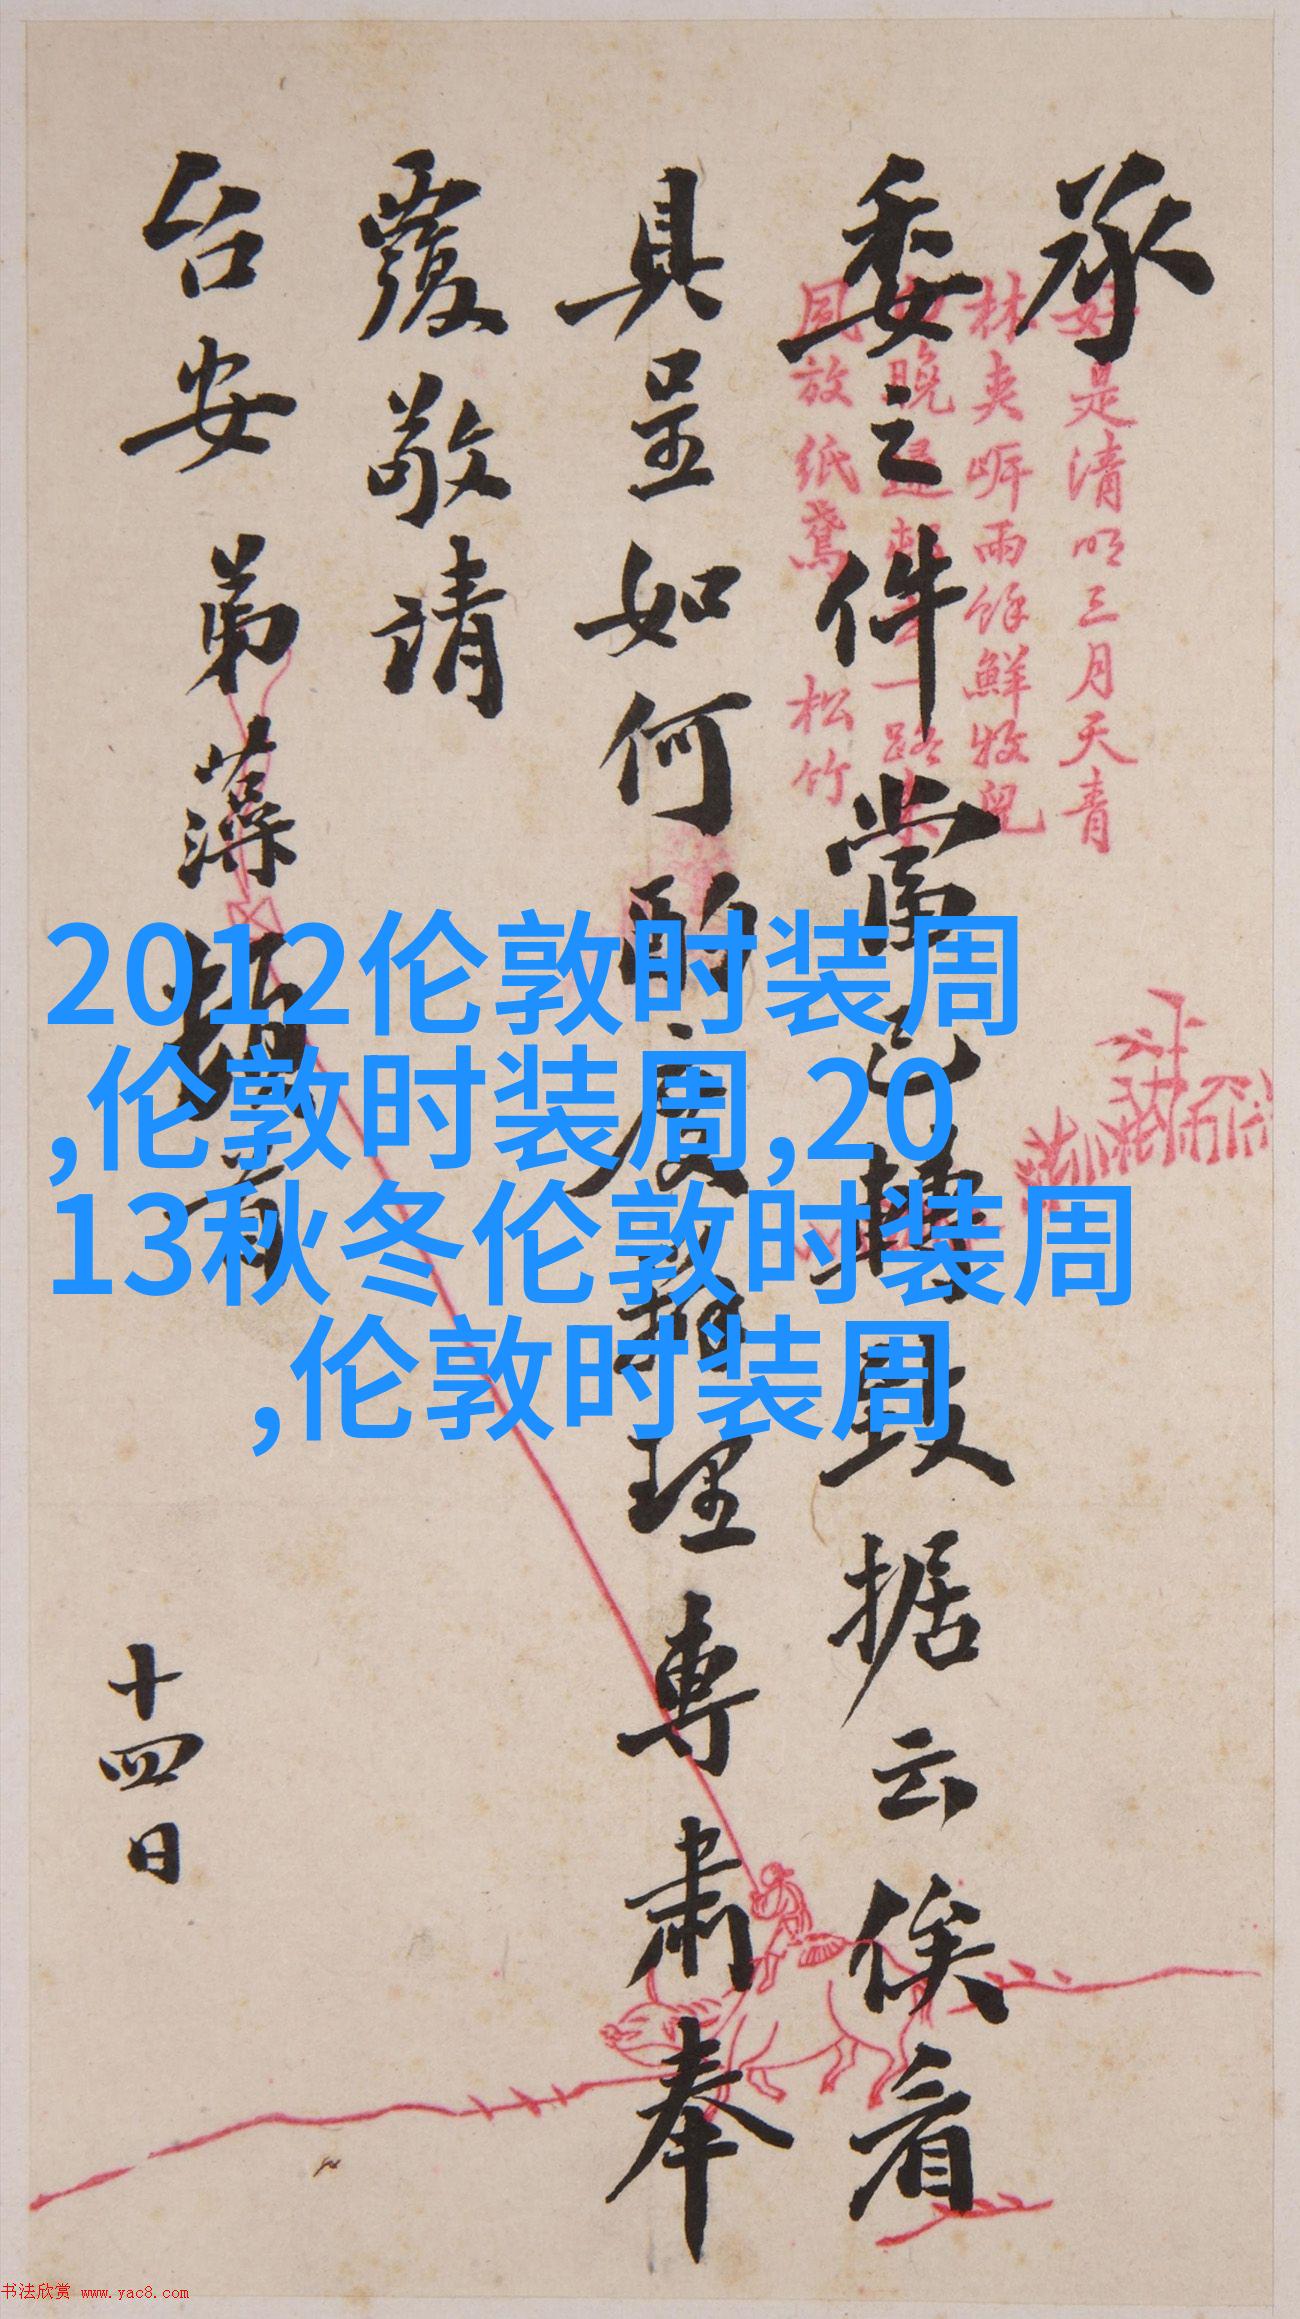 承
委之件當已轉致据云俟看
具呈如何酌度辦理專肅奉
覆敬請
台安 弟藻頓首
十四日
好是清明三月天青
林夾岍雨餘鮮牧兒
晚歸 一路
放紙鳶 松竹
2012伦敦时装周
,伦敦时装周,20
13秋冬伦敦时装周
,伦敦时装周
书法欣赏 www.yac8.com